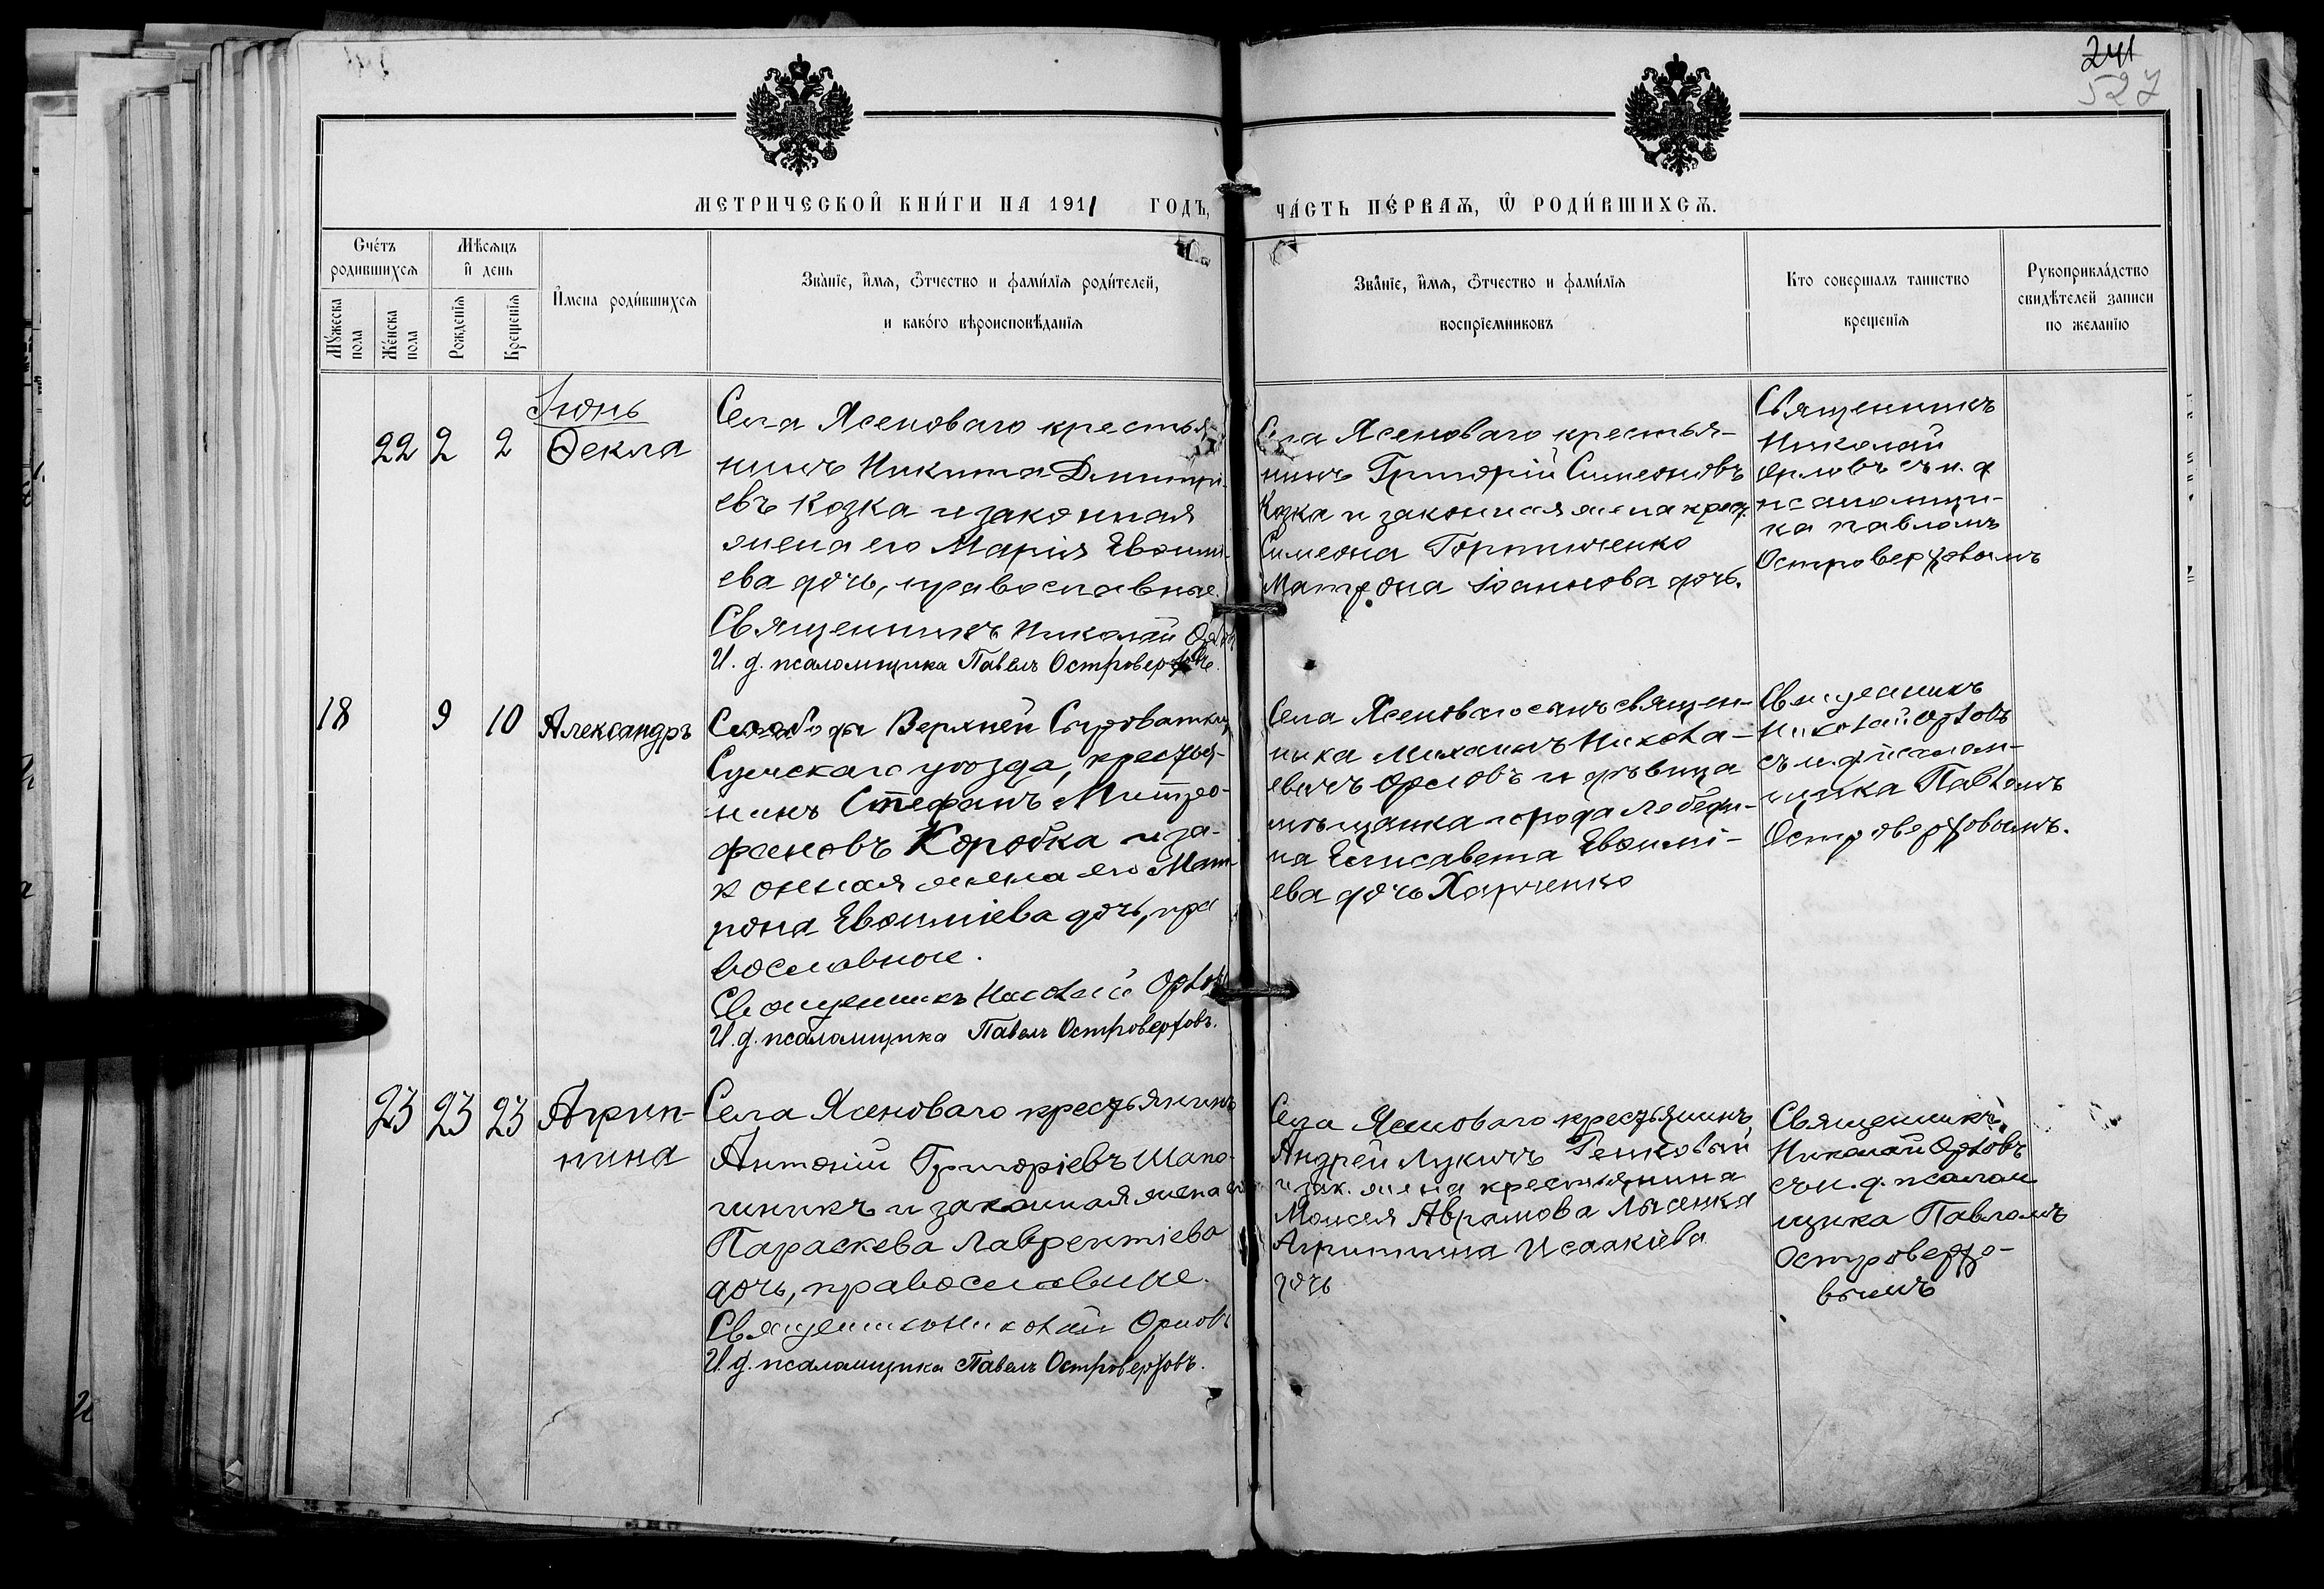 241
527
МЕТРИЧЕСКОЙ КНИ́ГИ НА 1911 ГОДЪ,
ЧА́СТЬ ПЕ́РВАѦ, Ѡ҆ РОДИ́ВШИХСѦ.
Сче́тъ родившихсѧ
Мѣ́сѧцъ и҆ день
Мꙋ́жеска пола
Же́нска пола
Рожденїѧ
Крещенїѧ
И҆мена роди́вшихсѧ
Зва́нїе, и҆́мѧ, ѻ҆́тчество и фами́лїѧ роди́телей,
и како́го вѣроисповѣ́данїѧ
Зва́нїе, и҆́мѧ, ѻ҆́тчество и фами́лїѧ
воспрїемниковъ
Кто совершалъ таинство
крещенїѧ
Рꙋкоприкла́дство
свидѣ́телей записи
по желанїю
Іюнь
22 2 2 Ѳекла
Села Ясеноваго крестья-
нинъ Никита Димитрі-
евъ Козка и законная
жена его Марія Евѳимі-
ева дочь, православные.
Священникъ Николай Орловъ
И. д. псаломщика Павелъ Островерховъ.
Села Ясеноваго крестья-
нинъ Григорій Симеоновъ
Козка и законная жена крест.
Симеона Горпинченко
Матрона Іоаннова дочь.
Священникъ
Николай
Орловъ съ и. д
псаломщи-
ка Павломъ
Островерховымъ
18 9 10 Александръ
Слободы Верхней Сыроватки,
Сумскаго уѣзда, крестья-
нинъ Стефанъ Митро-
фановъ Коробка и за-
конная жена его Мат-
рона Евѳиміева дочь, пра
вославные.
Священникъ Николай Орловъ
И. д. псаломщика Павелъ Островерховъ.
Села Ясеноваго сынъ священ-
ника Михаилъ Никола-
евичъ Орловъ и дѣвица
мѣщанка города Лебеди-
на Елисавета Евѳимі-
ева дочь Харченко
Священникъ
Николай Орловъ
съ и. д. псалом-
щика Павломъ
Островерховымъ.
23 23 23 Агрип-
пина
Села Ясеноваго крестьянинъ
Антоній Григоріевъ Шапо-
шникъ и законная жена его
Параскева Лаврентіева
дочь, православные.
Священникъ Николай Орловъ
И. д. псаломщика Павелъ Островерховъ.
Села Ясеноваго крестьянинъ
Андрей Лукичъ
и зак. жена крестьянина
Моисея Аврамова Лысенка
Агриппина Исаакіева
дочь
Священникъ
Николай Орловъ
съ и. д. псалом
щика Павломъ
Островерхо-
вымъ